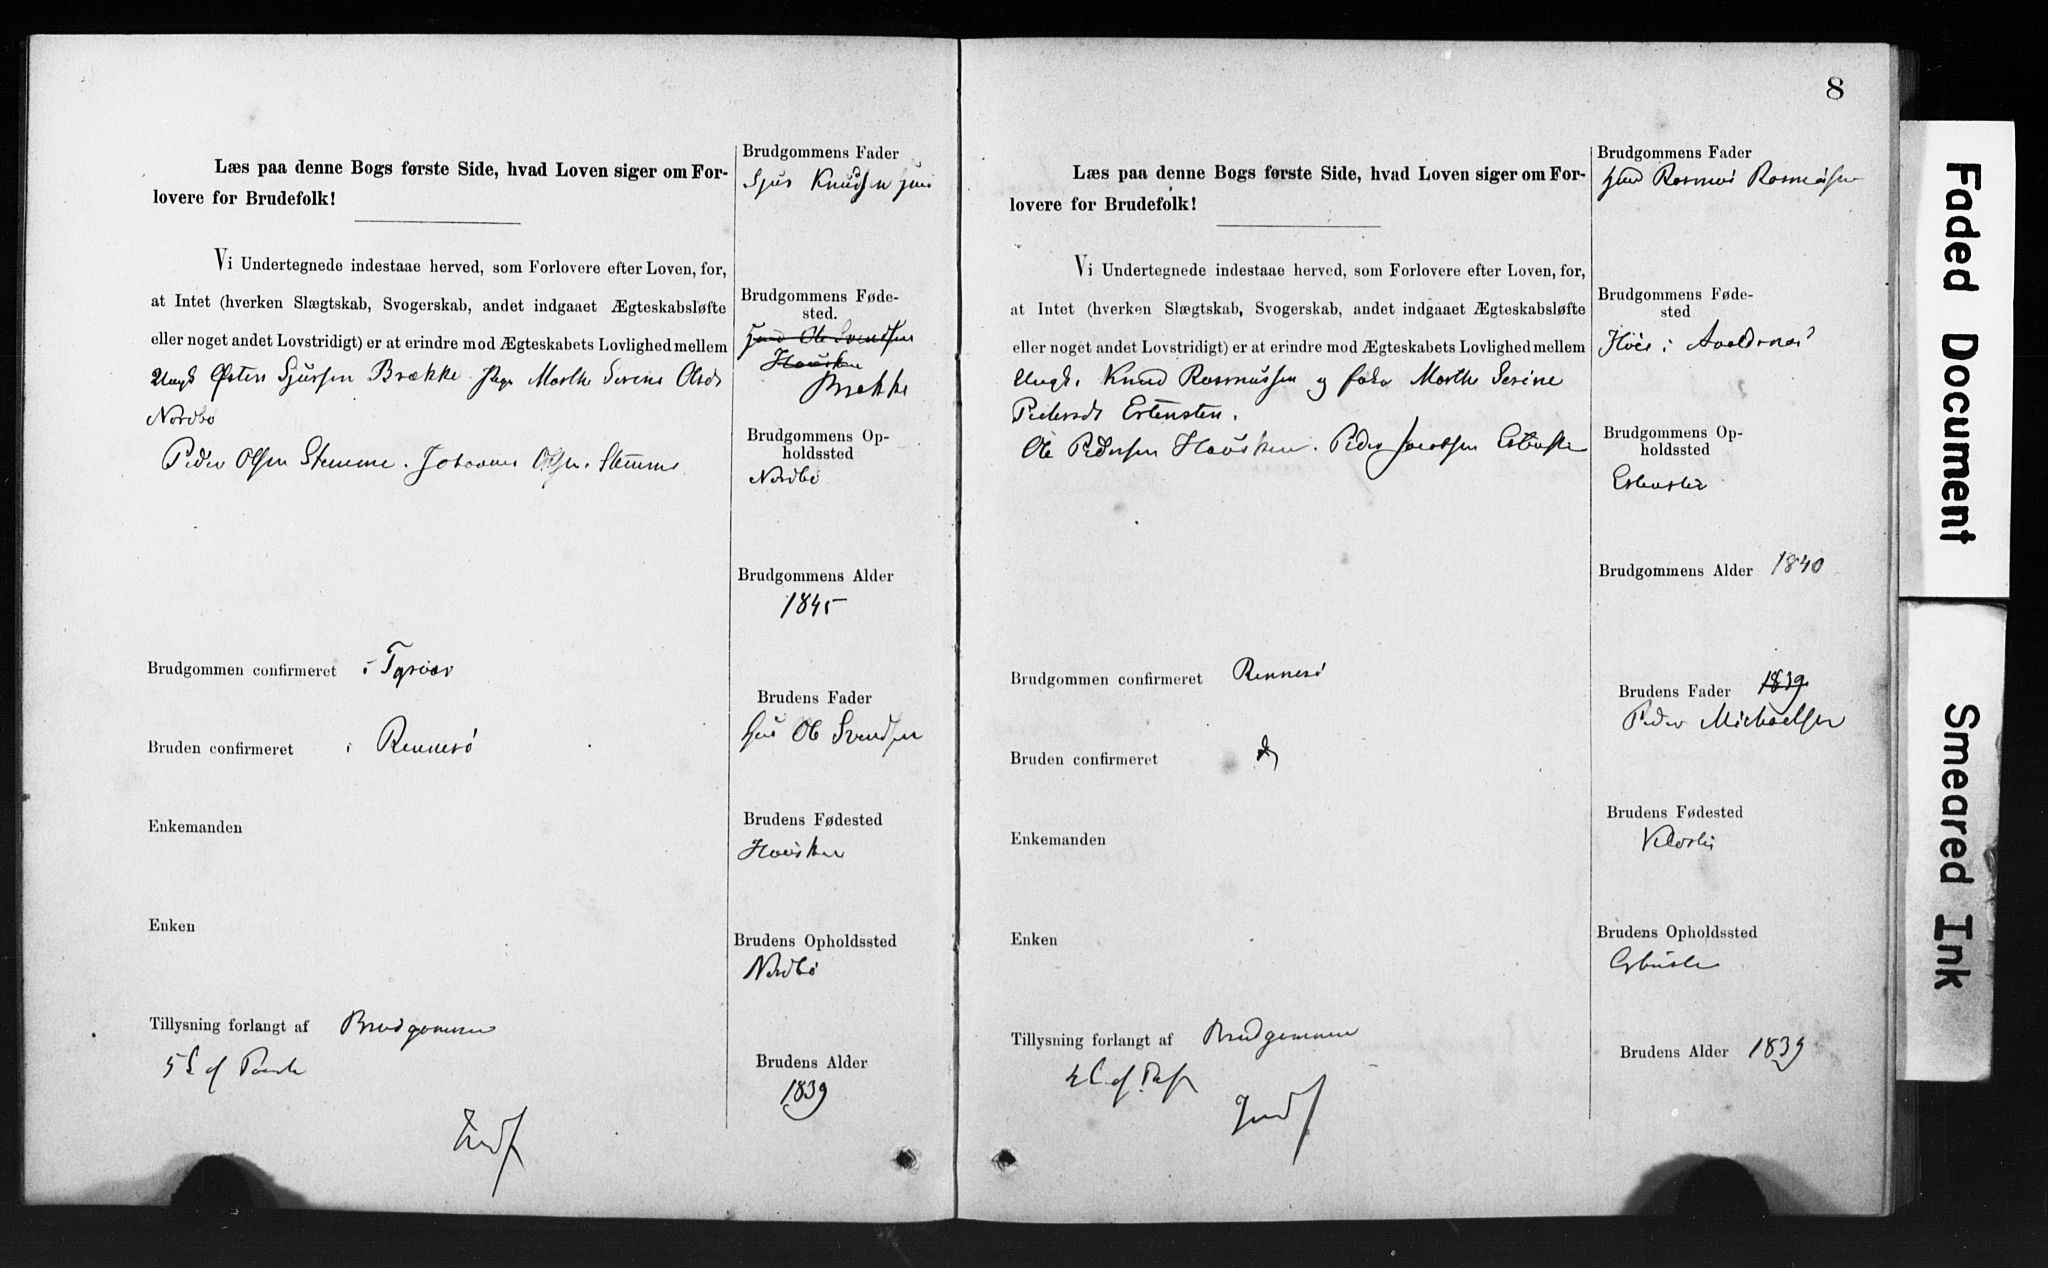 Læs paa denne Bogs første Side, hvad Loven siger om For-
lovere for Brudefolk!
Vi Undertegnede indestaae herved, som Forlovere efter Loven, for,
at Intet (hverken Slægtskab, Svogerskab, andet indgaaet Ægteskabsløfte
eller noget andet Lovstridigt) er at erindre mod Ægteskabets Lovlighed mellem
Ungk Østen Sjursen Brække Marthe Serene Olsdt
Nordbø
Peder Olsen Stemme. Johannes Olsen Stemme
Brudgommen confirmeret i Tysvær
Bruden confirmeret i Rennesø
Enkemanden
Enken
Tillysning forlangt af Brudgommen
Brudgommens Fader
Sjur Knudsen
Brudgommens Føde-
sted.
Gmd Ole Svendsen
Hausken
Brække
Brudgommens Op-
holdssted
Nordbø
Brudgommens Alder
1845
Brudens Fader
Ole Svendsen
Brudens Fødested
Hausken
Brudens Opholdssted
Nordbø
Brudens Alder
1839
8
Læs paa denne Bogs første Side, hvad Loven siger om For-
lovere for Brudefolk!
Vi Undertegnede indestaae herved, som Forlovere efter Loven, for,
at Intet (hverken Slægtskab, Svogerskab, andet indgaaet Ægteskabsløfte
eller noget andet Lovstridigt) er at erindre mod Ægteskabets Lovlighed mellem
Ungk. Knud Rasmussen og Marthe Serine
Pedersdt
Ole Pedersen Hausken. Peder Jacobsen
Brudgommen confirmeret Rennesø
Bruden confirmeret
Enkemanden
Enken
Tillysning forlangt af Brudgommen
Brudgommens Fader
Rasmus Rasmussen
Brudgommens Føde-
sted
i Avaldsnes
Brudgommens Op-
holdssted
Brudgommens Alder 1840
Brudens Fader 1839
Peder Michaelsen
Brudens Fødested
Brudens Opholdssted
Brudens Alder 1839
Faded Document
Smeared Ink